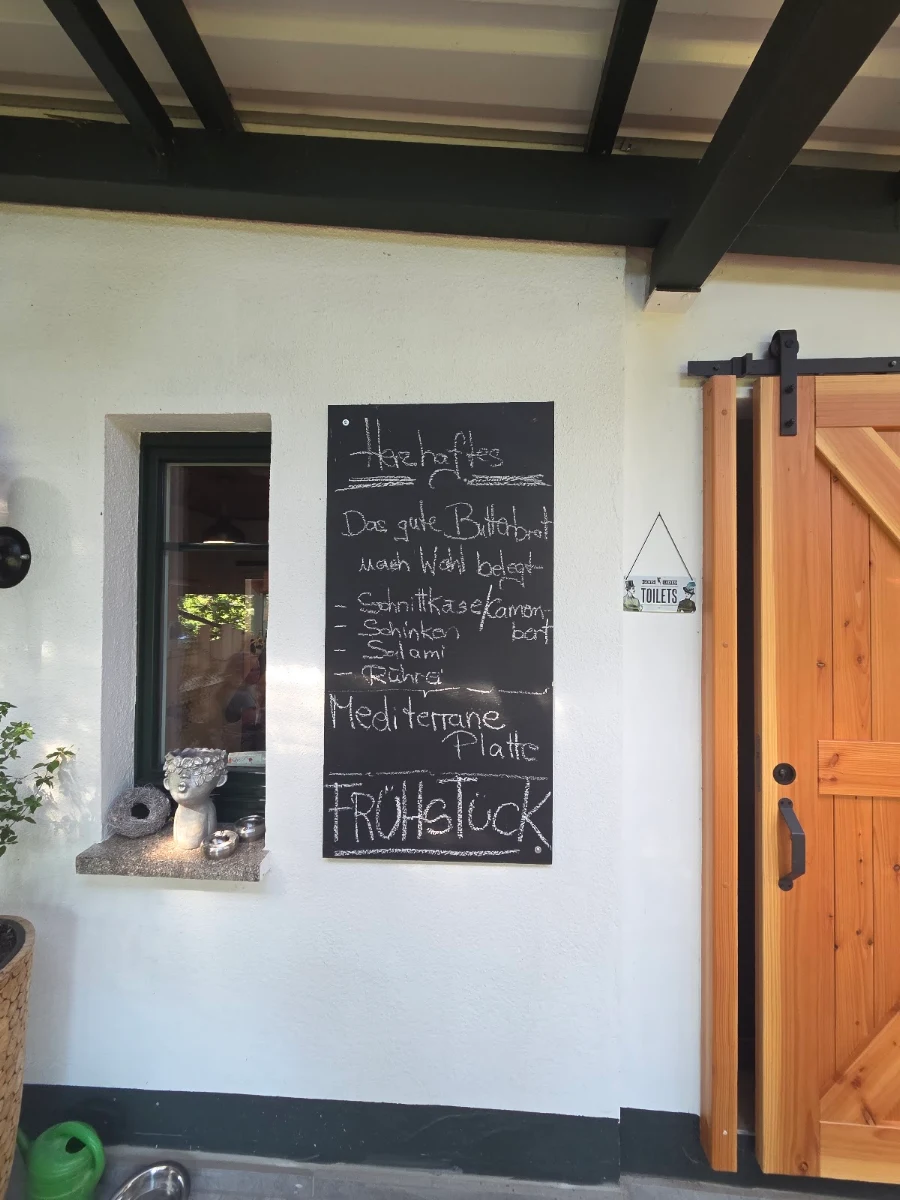 Herzhaftes
Das gute Butterbrot
nach Wahl belegt
- Schnittkäse/Camem-
bert
- Schinken
- Salami
- Rührei
Mediterrane
Platte
FRÜHSTÜCK
TOILETS